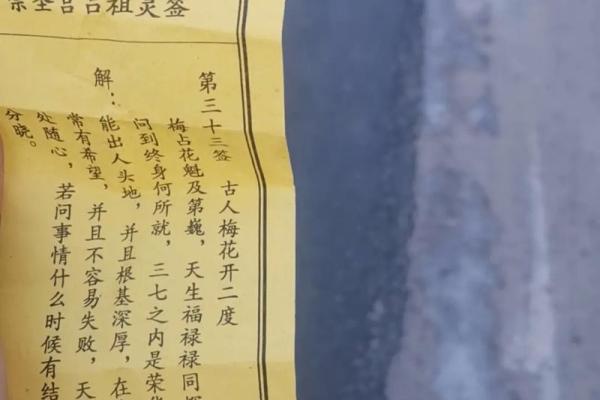 吕祖灵签
第三十三签 古人梅花开二度
梅占花魁及第巍，天生福禄禄同
问到终身何所就，三七之内是荣
解：能出人头地，并且根基深厚，在
常有希望，并且不容易失败，天
处随心，若问事情什么时候有结
分晓。